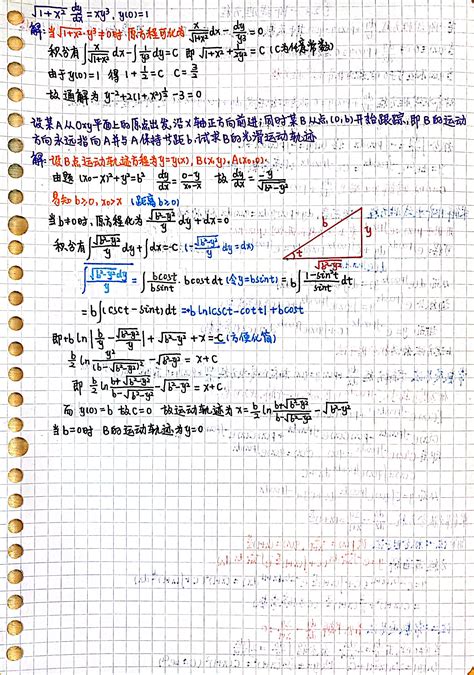 √(1+x²) dy/dx = xy³, y(0)=1
解: 当√(1+x²)·y³≠0时, 原方程可化为 x/√(1+x²) dx - dy/y³ = 0
积分有∫x/√(1+x²) dx - ∫1/y³ dy = C 即 √(1+x²) + 1/2y² = C (C为任意常数)
由于y(0)=1 得 1+1/2=C C=3/2
故通解为 y⁻²+2(1+x²)^(1/2)-3=0
设某A从Oxy平面上的原点出发,沿x轴正方向前进;同时某B从点(0,b)开始跟踪,即B的运动
方向永远指向A并与A保持等距b.试求B的光滑运动轨迹
解: 设B点运动轨迹方程为y=y(x), B(x,y), A(x₀,0)
由题 (x₀-x)²+y²=b² dy/dx = (0-y)/(x₀-x) 故 dy/dx = -y/√(b²-y²)
易知b≥0, x₀>x (距离b≥0)
当b≠0时, 原方程化为 √(b²-y²)/y dy+dx=0
积分有∫√(b²-y²)/y dy+∫dx=-C (-√(b²-y²)/y dy=dx)
b
y
t
√(b²-y²)
∫√(b²-y²)dy/y = ∫bcost/bsint · bcost dt (令y=bsint) = b∫(1-sin²t)/sint dt
= b∫(csct-sint)dt = b ln|csct-cott|+bcost
即+b ln|b/y - √(b²-y²)/y| + √(b²-y²) + x = -C (方便化简)
b/2 ln y²/(b-√(b²-y²))² - √(b²-y²) = x+C
即 b/2 ln (b+√(b²-y²))/(b-√(b²-y²)) - √(b²-y²) = x+C
而 y(0)=b 故C=0 故运动轨迹为 x= b/2 ln (b+√(b²-y²))/(b-√(b²-y²)) - √(b²-y²)
当b=0时 B的运动轨迹为y=0